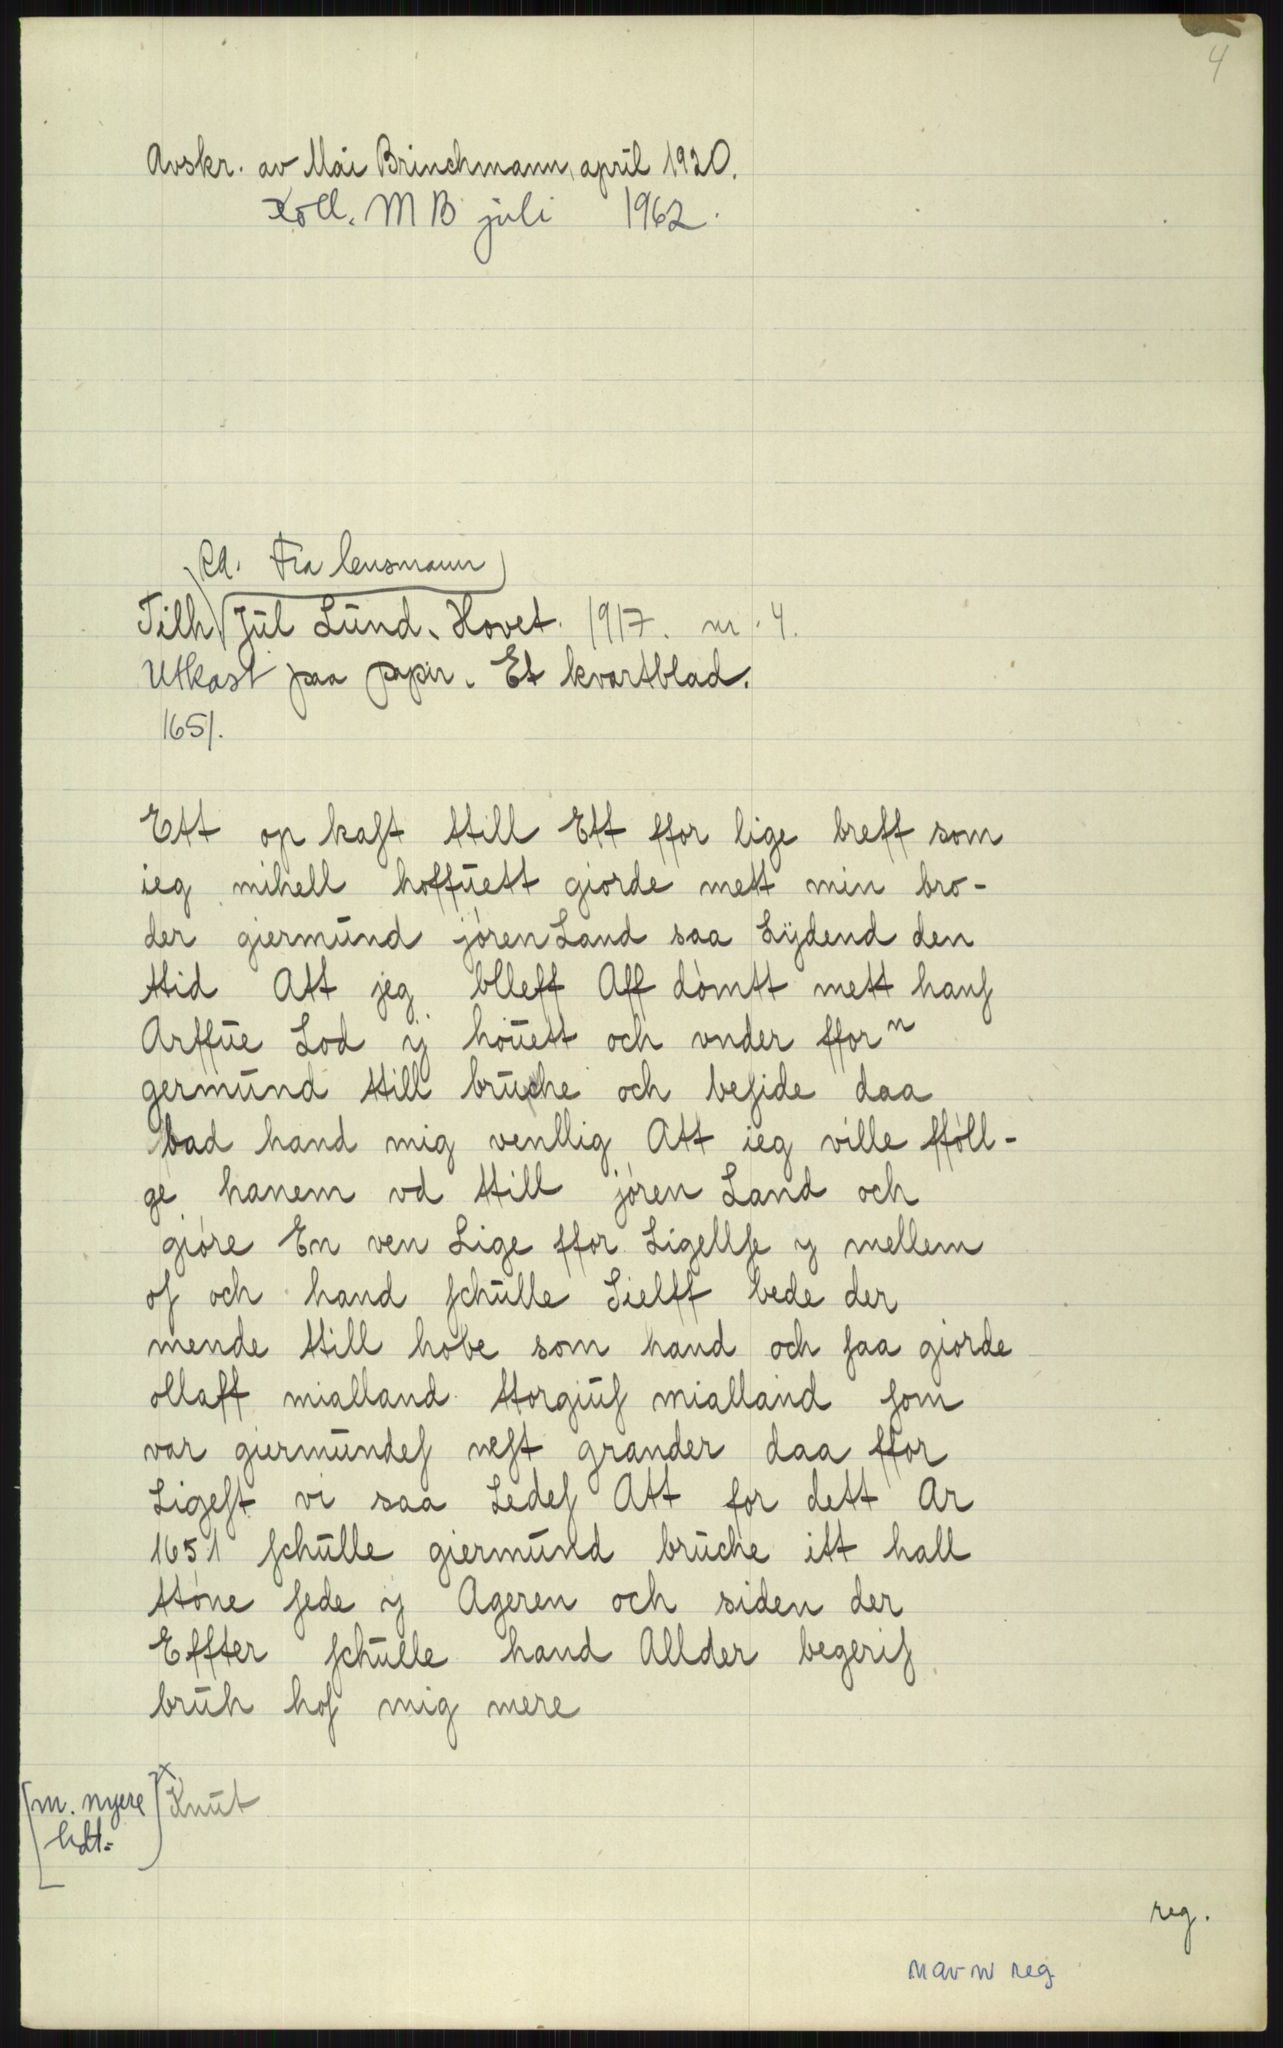 4
Avskr. av Mai Brinchmann, april 1920.
Koll. M B juli 1962.
Fra lensmann
Tilh Jul Lund. Hovet. 1917. nr. 4.
Utkast paa papir. Et kvartblad.
1651.
Ett op kaſt ttill Ett ffor lige breff som
ieg mihell hoffuett giorde mett min bro-
der giermund jóren Land saa Lÿdend den
ttid Att jeg blleff Aff dómtt mett hanſ
Arffue Lod ÿ hóuett och vnder ffor n
germund ttill bruche och beſide daa
bad hand mig venllig Att ieg ville ffóll-
ge hanem vd ttill jóren Land och
gióre En ven Lige ffor Ligellſe y mellem
oſ och hand ſchulle Sielff bede der
mende ttill hobe som hand och ſaa giorde
ollaff mialland ttorgiuſ mialland ſom
var giermundeſ neſt grander daa ffor
Ligeſt vi saa Ledeſ Att for dett Ar
1651 ſchulle giermund bruche itt hall
ttóne ſede ÿ Ageren och siden der
Effter ſchulle hand Allder begeriſ
bruh hoſ mig mere
[m. nyere hdt.] x Knut
reg.
navn reg